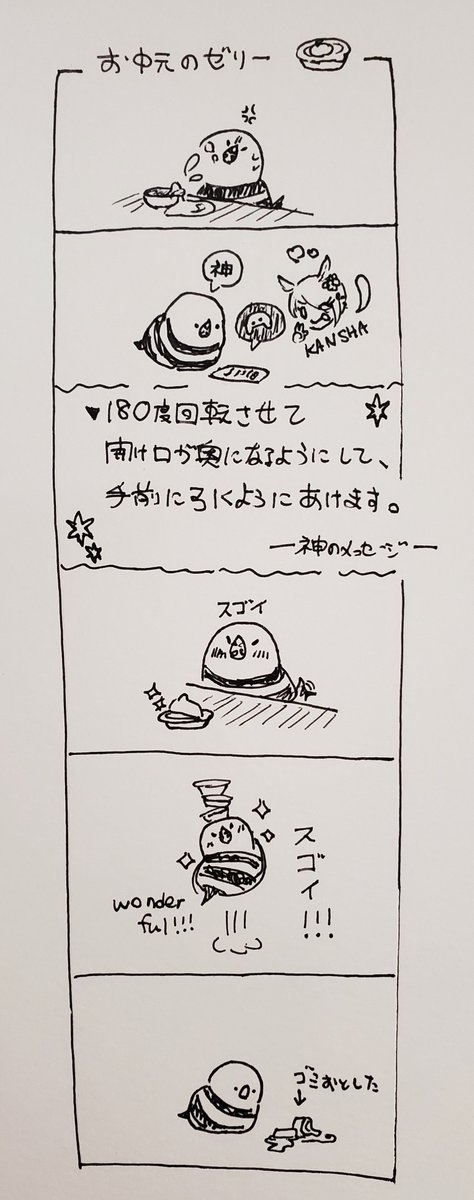 お中元のゼリー
神
KANSHA
▼180度回転させて
開け口が奥になるようにして、
手前に引くようにあけます。
―神のメッセージ―
スゴイ
スゴイ!!!
wonder
ful!!!
ゴミおとした
↓